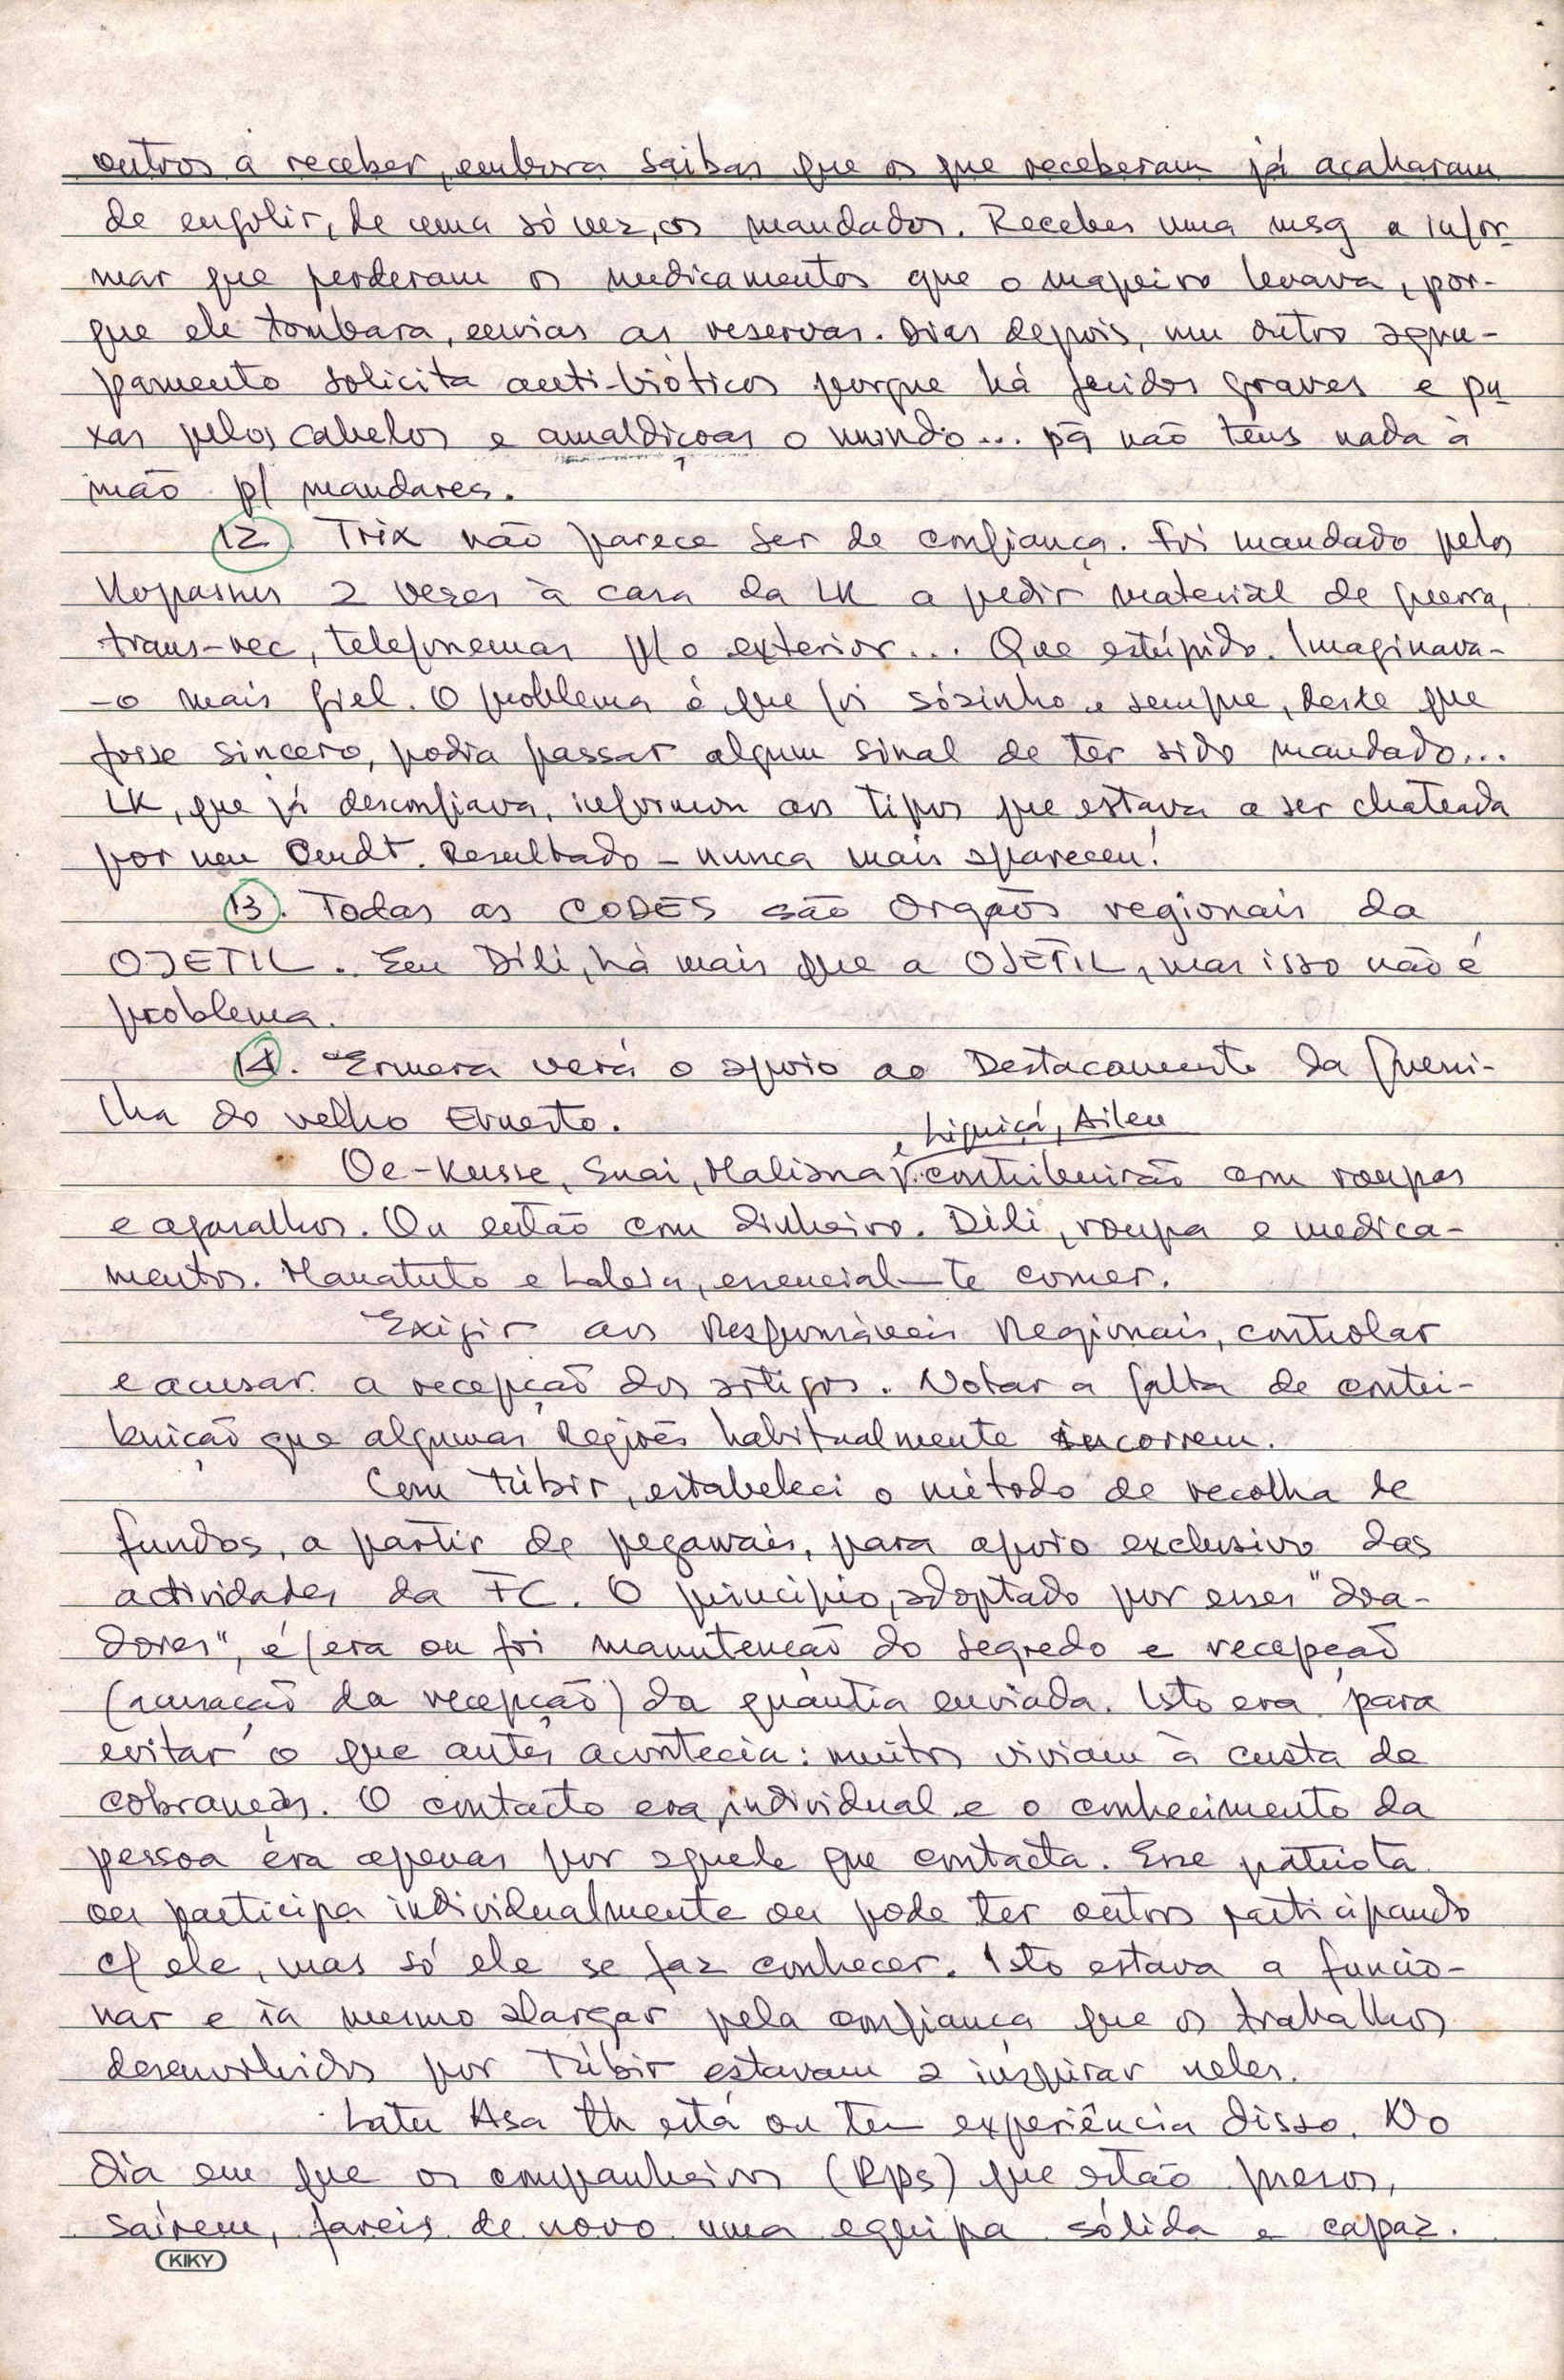 outros a receber, embora saibas que os que receberam já acabaram
de engolir, de uma só vez, os mandados. Recebes uma msg a infor-
mar que perderam os medicamentos que o mapeiro levava, por-
que ele tombara, envias as reservas. Dias depois, um outro agru-
pamento solicita anti-bióticos porque há feridos graves e pu
xas pelos cabelos e amaldiçoas o mundo... pq não tens nada à
mão p/ mandares.
12. Trix não parece ser de confiança. Foi mandado pelos
Kopasus 2 vezes à casa da LK a pedir material de guerra,
trans-rec, telefonemas p/ o exterior... Que estúpido. Imaginava-
-o mais fiel. O problema é que foi sózinho e sempre, desde que
fosse sincero, podia passar algum sinal de ter sido mandado...
LK, que já desconfiava, informou aos tipos que estava a ser chateada
por um Cmdt. Resultado - nunca mais apareceu!
13. Todas as CODES são Orgãos regionais da
OJETIL. Em Díli, há mais que a OJETIL, mas isso não é
problema.
14. Ermera verá o apoio ao Destacamento da Guerri-
lha do velho Ernesto.
, Liquiçá, Aileu
Oe-Kusse, Suai, Maliana, contribuirão com roupas
e agasalhos. Ou então com dinheiro. Díli, roupa e medica-
mentos. Manatuto e Laleia, essencial-te comer.
Exigir aos Responsáveis Regionais, controlar
e acusar a recepção dos artigos. Notar a falta de contri-
buição que algumas Regiões habitualmente incorrem.
Com Túbir, estabeleci o método de recolha de
fundos, a partir de pegawais, para apoio exclusivo das
actividades da FC. O princípio, adoptado por esses "doa-
dores", é/era ou foi manutenção do segredo e recepção
(acusação da recepção) da quantia enviada. Isto era para
evitar o que antes acontecia: muitos viviam à custa de
cobranças. O contacto era individual e o conhecimento da
pessoa era apenas por aquele que contacta. Esse patriota
ou participa individualmente ou pode ter outros participando
c/ ele, mas só ele se faz conhecer. Isto estava a funcio-
nar e ia mesmo alargar pela confiança que os trabalhos
desenvolvidos por Túbir estavam a inspirar neles.
Latu Asa th está ou tem experiência disso. No
dia em que os companheiros (Rps) que estão presos,
saírem, fareis de novo uma equipa sólida e capaz.
KIKY